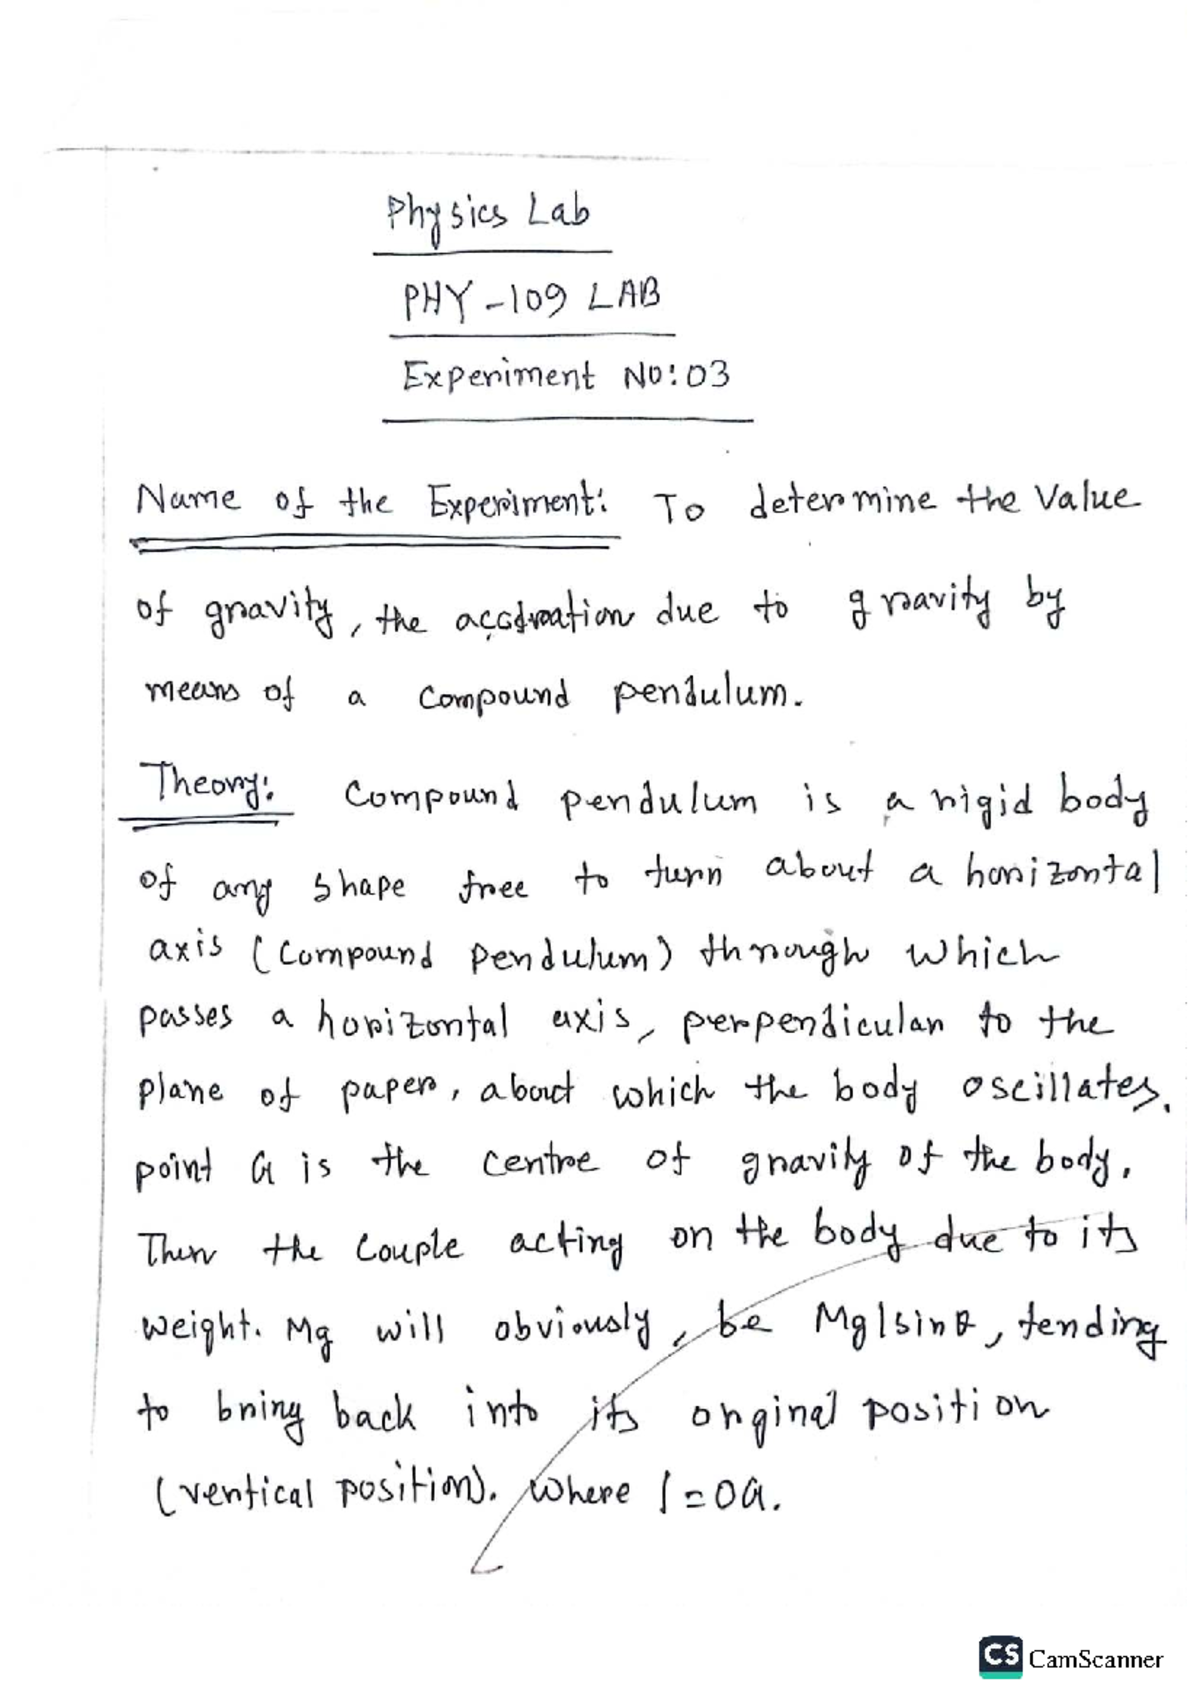 Physics Lab
PHY-109 LAB
Experiment No: 03
Name of the Experiment: To determine the value
of gravity, the due to gravity by
means of a compound pendulum.
Theory: Compound pendulum is a rigid body
of any shape free to turn about a horizontal
axis (compound pendulum) through which
passes a horizontal axis, perpendicular to the
plane of paper, about which the body oscillates.
point G is the centre of gravity of the body.
Then the couple acting on the body due to its
weight. Mg will obviously, be Mglsinθ, tending
to bring back into its orginal position
(vertical position). Where l = OG.
CS CamScanner